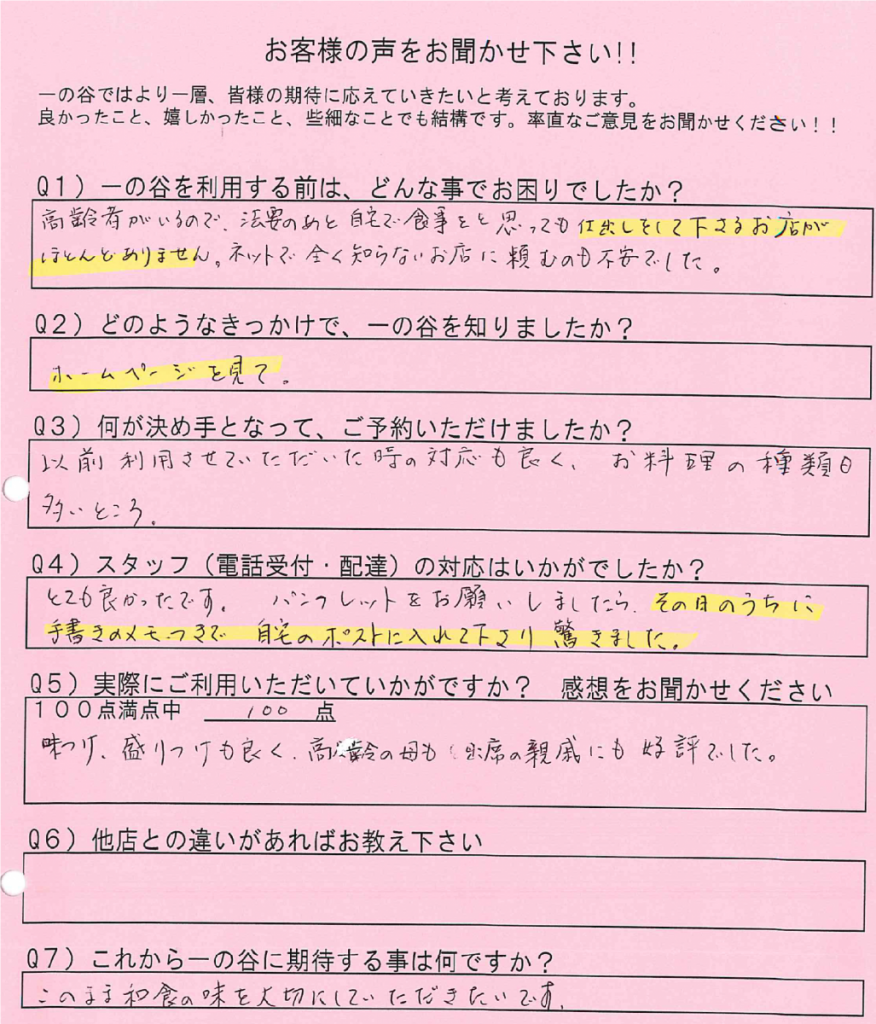 お客様の声をお聞かせ下さい!!
一の谷ではより一層、皆様の期待に応えていきたいと考えております。
良かったこと、嬉しかったこと、些細なことでも結構です。率直なご意見をお聞かせください!!
Q1)一の谷を利用する前は、どんな事でお困りでしたか?
高齢者がいるので、法要のあと自宅で食事をと思っても仕出しをして下さるお店が
ほとんどありません。ネットで全く知らないお店に頼むのも不安でした。
Q2)どのようなきっかけで、一の谷を知りましたか?
ホームページを見て。
Q3)何が決め手となって、ご予約いただけましたか?
以前利用させていただいた時の対応も良く、お料理の種類も
多いところ。
Q4)スタッフ(電話受付・配達)の対応はいかがでしたか?
とても良かったです。パンフレットをお願いしましたら、その日のうちに
手書きのメモつきで自宅のポストに入れて下さり驚きました。
Q5)実際にご利用いただいていかがですか? 感想をお聞かせください
100点満点中 100 点
味つけ、盛りつけも良く、高齢の母も出席の親戚にも好評でした。
Q6)他店との違いがあればお教え下さい
Q7)これから一の谷に期待する事は何ですか?
このまま和食の味を大切にしていただきたいです。